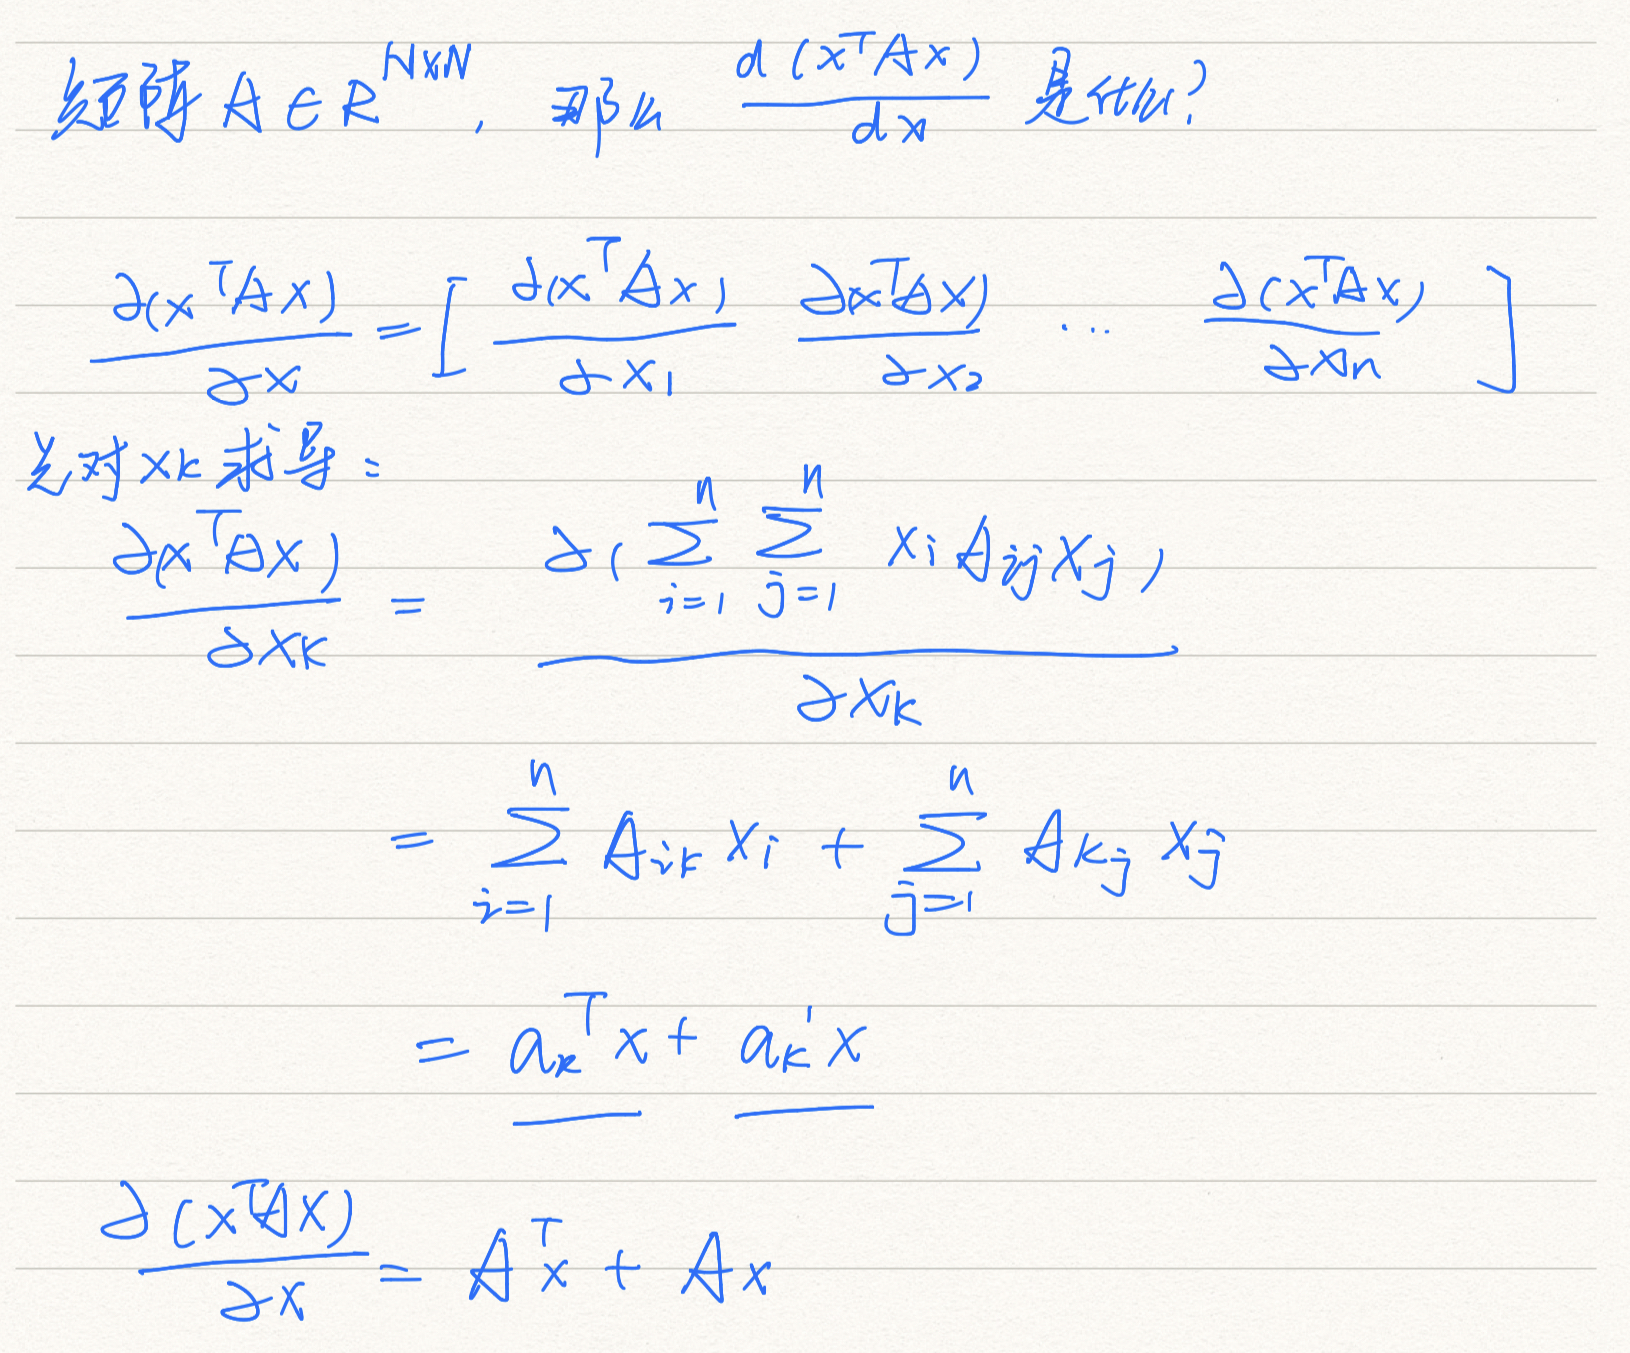 矩阵 A ∈ R^{N×N}, 那么 \frac{d(x^T A x)}{dx} 是什么?
\frac{∂(x^T A x)}{∂x} = [ \frac{∂(x^T A x)}{∂x_1} \frac{∂(x^T A x)}{∂x_2} ... \frac{∂(x^T A x)}{∂x_n} ]
先对 x_k 求导:
\frac{∂(x^T A x)}{∂x_k} = \frac{∂(\sum_{i=1}^{n} \sum_{j=1}^{n} x_i A_{ij} x_j)}{∂x_k}
= \sum_{i=1}^{n} A_{ik} x_i + \sum_{j=1}^{n} A_{kj} x_j
= a_k^T x + a_k' x
\frac{∂(x^T A x)}{∂x} = A^T x + A x